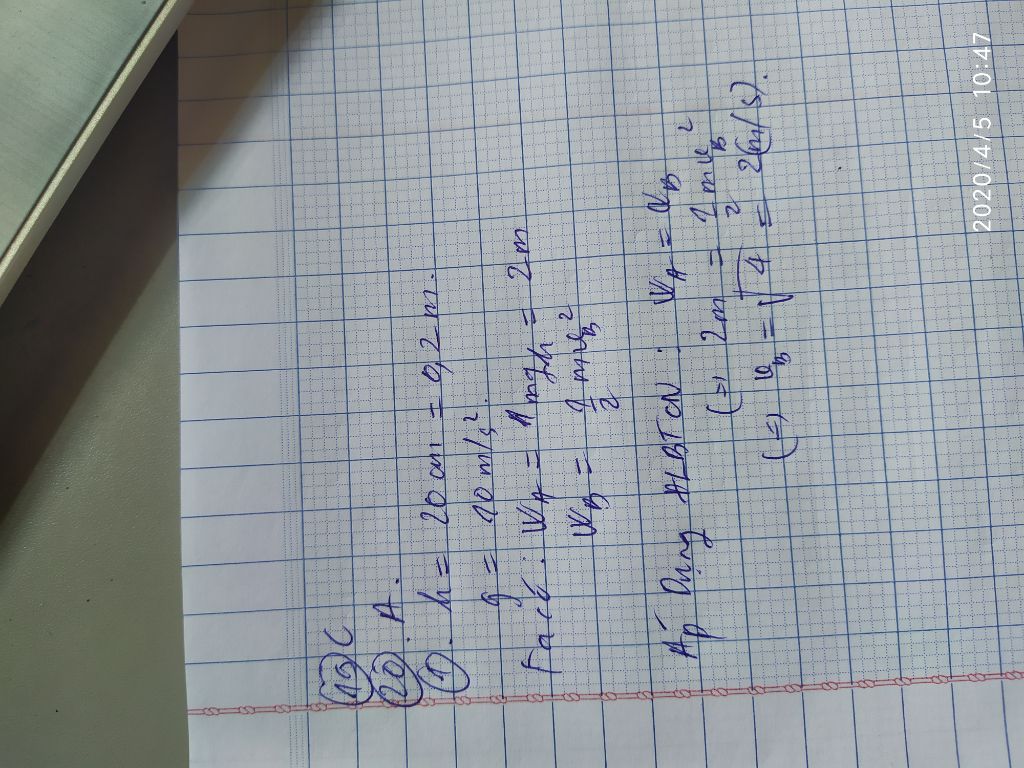 19 C
20. A.
1. h = 20 cm = 0,2 m.
g = 10 m/s².
Ta có: W_A = mgh = 2m
W_B = 1/2 mv_B²
Áp Dụng ĐLBTCN: W_A = W_B
(=) 2m = 1/2 mv_B²
(=) v_B = √4 = 2(m/s).
2020/4/5 10:47